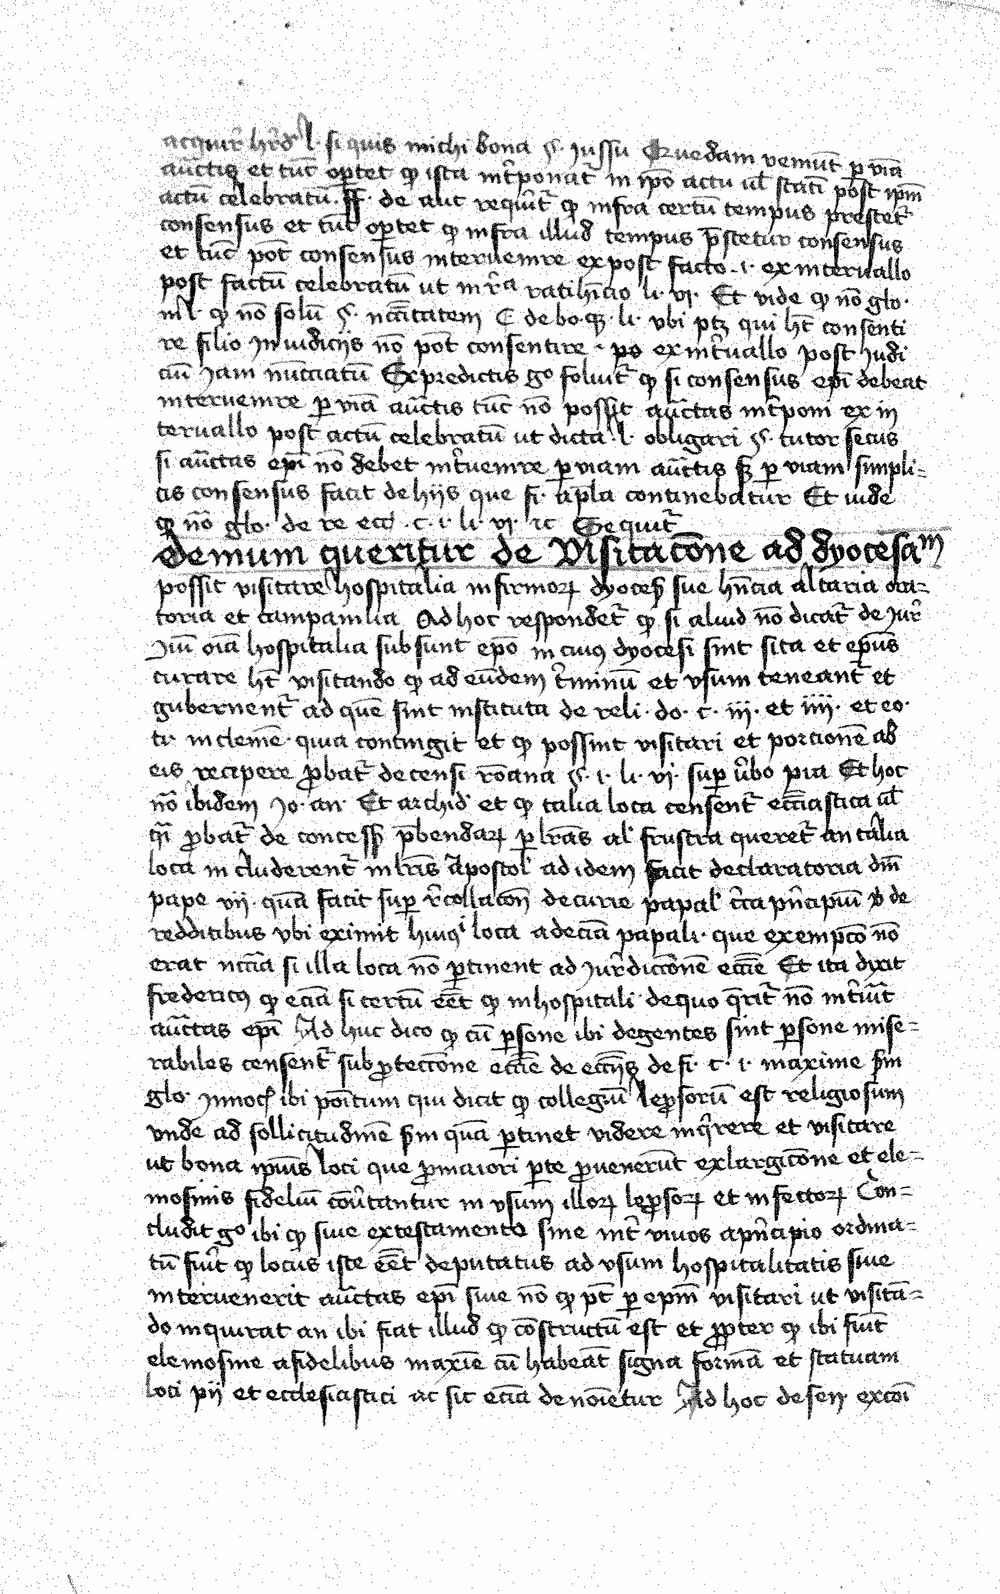 acquir̄ hr̄d l. si quis michi bona §. Jussu Quedam veniūt ꝑ viā
auc̄tis et tūc oꝑtet ꝙ ista int̄ponat᷑ in ip̄o actu ul̄ stati post ip̄m
actū celebratū. ff. de auc requirit᷑ ꝙ infra certū tempus prestet᷑
consensus et tūc oꝑtet ꝙ infra illud tempus p̄stetur consensus
et tūc pōt consensus interuenire ex post facto .i. ex interuallo
post factū celebratū ut in rᵃ ratihīcio li. vi. Et vide ꝙ nō glo.
in l. ꝙ nō solū §. nccītatem C de bo. q̄. li. vbi ptꝫ qui hꝫ consenti
re filio in iudiciis nō pōt consentire ex int̄uallo post iudi
ciū iam nunciatū Ex predictis gͦ soluit᷑ ꝙ si consensus ep̄i debeat
interuenire ꝑ viā auc̄tis tūc nō possit auc̄tas int̄poni ex in
teruallo post actū celebratū ut dicta l. obligari §. tutor secus
si auc̄tas ep̄i nō debet int̄uenire ꝑ viam auc̄tis sꝫ ꝑ viam simpli=
cis consensus facit de hiis que si. ap̄la continebatur Et uide
ꝙ nō glo. de re ecc̄ .c. i. li. vi. ꝛc Sequit᷑
Demum queritur de visitacōne ad dyocesaᵐ
possit visitare hospitalia infirmoꝝ dyoces̄ sue hn̄cia altaria ora=
toria et campanilia Ad hoc respondet᷑ ꝙ si aliud nō dicat᷑ de iur̄
Jtū oīa hospitalia subsunt ep̄o in cuiꝰ dyocesi sint sita et ep̄us
curare hꝫ visitando ꝙ ad eūdem t̄minū et vsum teneant᷑ et
gubernent᷑ ad quē sint instituta de reli. do. c. iii. et iiii. et eo.
ti. in clemē. quia contingit et ꝙ possint visitari et porcionē ab
eis recipere ꝓbat᷑ de censi rōana §. i. li. vi. suꝑ v̄bo pia Et hoc
nō ibidem Jo. an. Et archid̄ et ꝙ talia loca censent᷑ ecc̄iastica ul̄
ꝓbat᷑ de concess̄ p̄bendaꝝ ꝑ lr̄as al̄ frustra queret᷑ an talia
loca includerent᷑ in lr̄is apostol̄ ad idem facit declaratoria dn̄i
pape vii. quā facit suꝑ r̄collacōn̄ de curie papal̄ c̄ca pn̄cipiū v̄ de
redditibus vbi eximit huiꝰi loca a decīa papali. que exempcō nō
erat nccīa si illa loca nō ꝑtinent ad iur̄dictōnē ecc̄ie Et ita dixit
fredericꝰ ꝙ ecīa si certū eēt ꝙ in hospitali de quo q̄rit᷑ nō int̄iuīt
auc̄tas ep̄i Ad huc dico ꝙ cū ꝑsone ibi degentes sint ꝑsone mise=
rabiles censent᷑ sub ꝓtectōne ecc̄ie de ecc̄iis de fi. c. i. maxime sm̄
glo. Jnnoc̄ ibi poītum qui dicit ꝙ collegiū leprosorū est religiosum
vnde ad sollicitudinē sm̄ quā ꝑtinet videre inq̄rere et visitare
ut bona ipiꝰ loci que ꝓ maiori ꝑte ꝓuenerūt ex largicōne et ele=
mosinis fideliū cōūtantur in vsum illoꝝ leprosoꝝ et infectoꝝ Con=
cludit gͦ ibi ꝙ siue ex testamento siue int̄ viuos a pn̄cipio ordina=
tū fiūt ꝙ locus iste eēt deputatus ad vsum hospitalitatis siue
interuenerit auc̄tas ep̄i siue nō ꝙ pt̄ ꝑ ep̄m visitari ut visitā=
do inquirat an ibi fiat illud ꝙ constructū est et ꝓpter ꝙ ibi fiūt
elemosine a fidelibus maxīe cū habeāt signa formā et statuam
loci pii et ecclesiastici ac sic ecīa denoīetur Ad hoc de sen. excōi